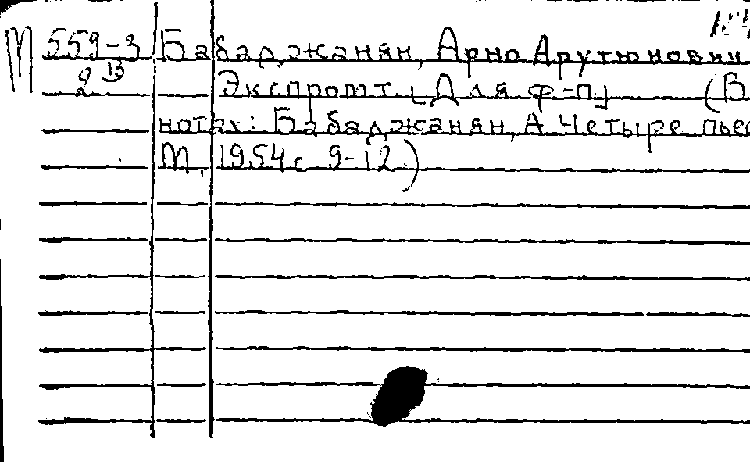 М 559-3 Бабаджанян, Арно Арутюнович
2 13 Экспромт. [Для ф-п.] (В
нотах: Бабаджанян, А. Четыре пьес
М., 1954, с 9-12)